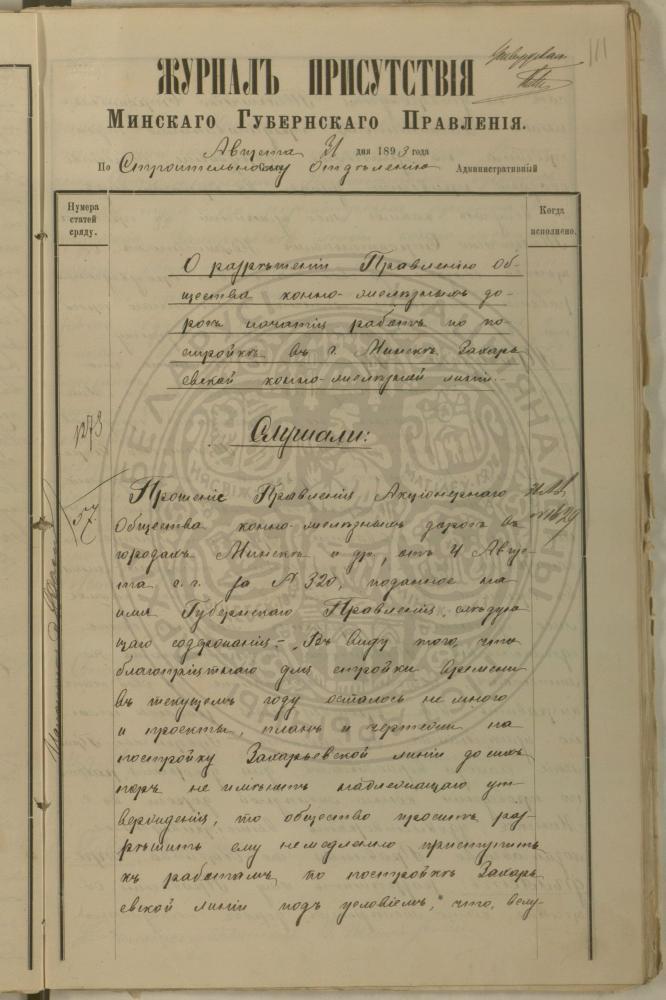 111
ЖУРНАЛЪ ПРИСУТСТВІЯ
МИНСКАГО ГУБЕРНСКАГО ПРАВЛЕНІЯ.
Августа 31 дня 1893 года
По Строительному Отдѣленію Административный
Нумера
статей
сряду.
Когда
исполнено.
О разрѣшеніи Правленію об-
щества конно-желѣзныхъ до-
рогъ начатія работъ по по-
стройкѣ въ г. Минскѣ Захарь
евской конно-желѣзной линіи.
Слушали:
1273
57
Прошеніе Правленія Акціонернаго
Общества конно-желѣзныхъ дорогъ въ
городахъ Минскѣ и др., отъ 4 Авгус-
та с. г. за № 320, поданное на
имя Губернскаго Правленія, слѣдую
щаго содержанія: „Въ виду того, что
благопріятнаго для стройки времени
въ текущемъ году осталось не много
и проекты, планъ и чертежи на
постройку Захарьевской линіи до сихъ
поръ не имѣютъ надлежащаго ут
вержденія, то общество проситъ раз-
рѣшить ему немедленно приступить
къ работамъ по постройкѣ Захарь
евской линіи подъ условіемъ, что, велу-